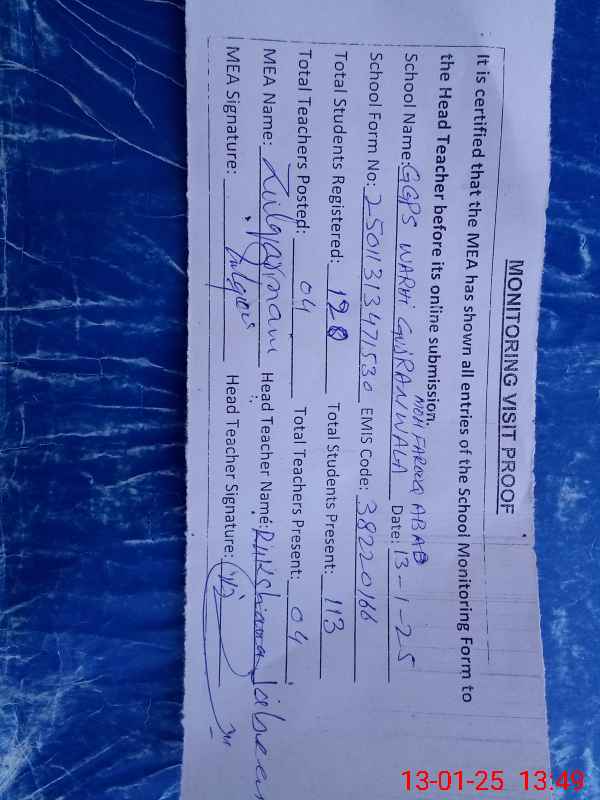 MONITORING VISIT PROOF
It is certified that the MEA has shown all entries of the School Monitoring Form to
the Head Teacher before its online submission.
MOH FAROOQ ABAD
School Name: GGPS WARHI GUJRANWALA Date: 13-1-25
School Form No: 25011313471530 EMIS Code: 38220166
Total Students Registered: 120 Total Students Present: 113
Total Teachers Posted: 04 Total Teachers Present: 04
MEA Name: Head Teacher Name: Jabeen
MEA Signature: Head Teacher Signature:
13-01-25 13:49